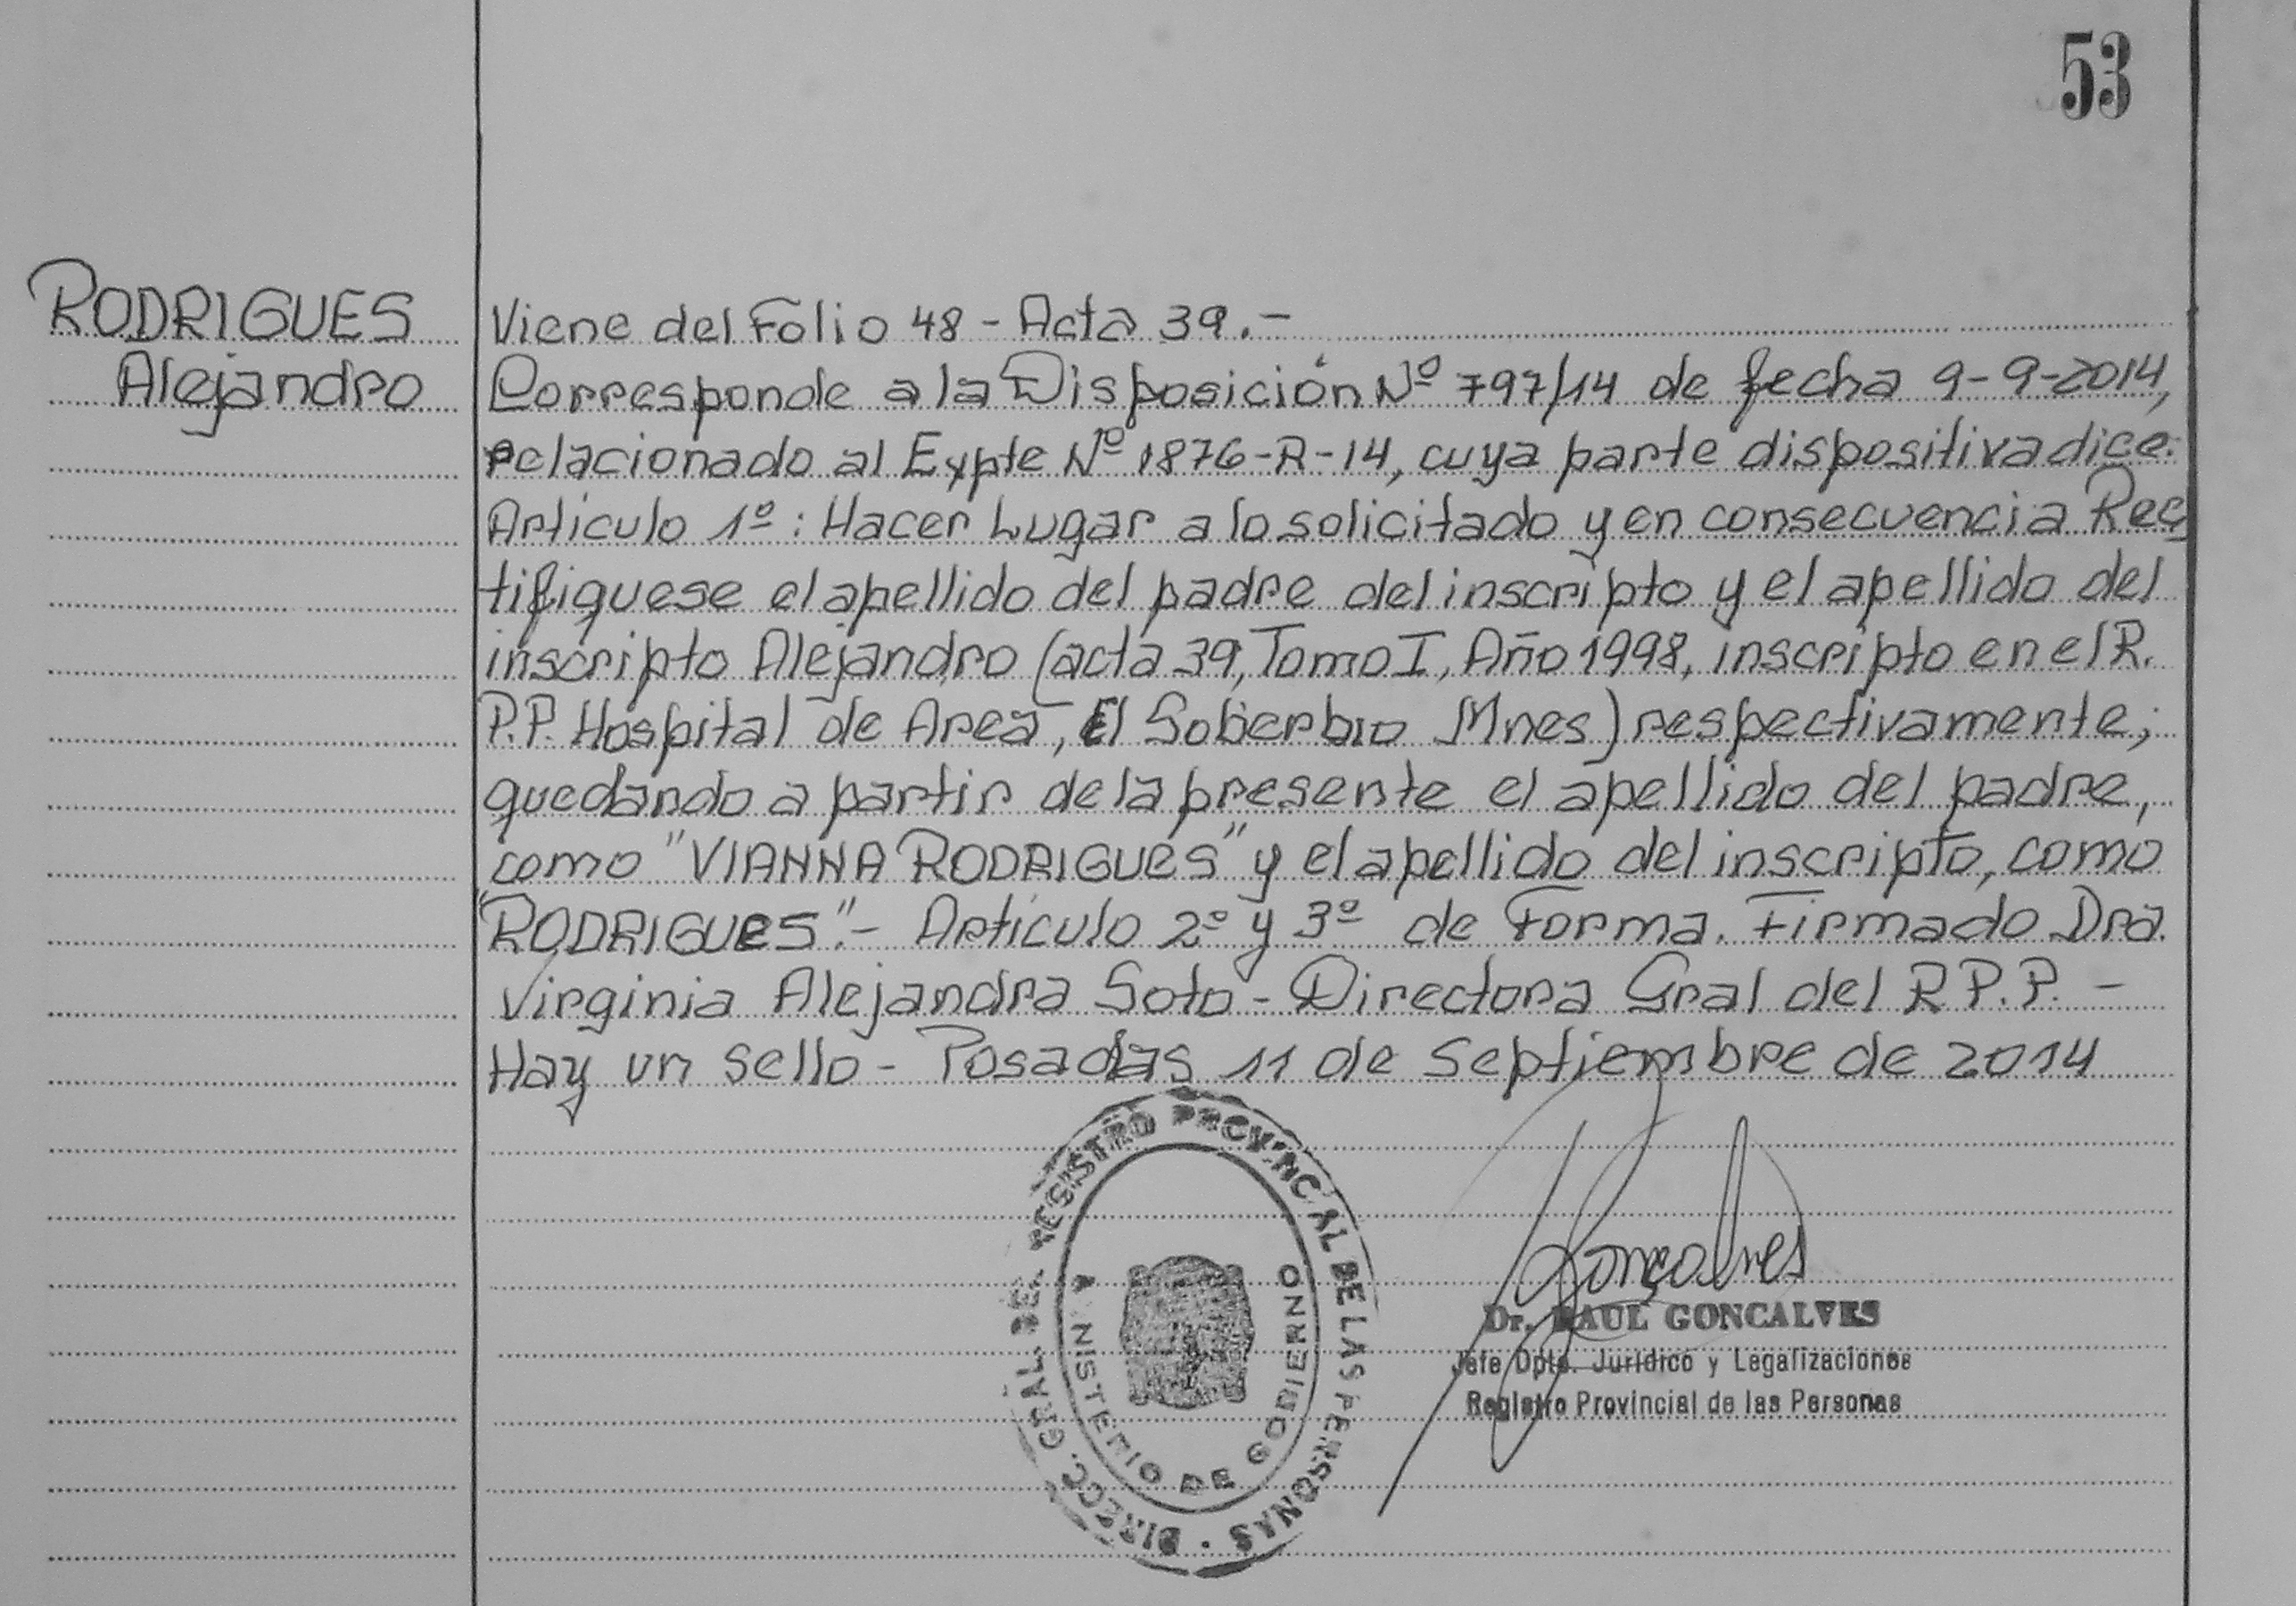 53
RODRIGUES
Alejandro
Viene del Folio 48 - Acta 39.-
Corresponde a la Disposición Nº 797/14 de fecha 9-9-2014,
relacionado al Expte Nº 1876-R-14, cuya parte dispositiva dice:
Artículo 1º: Hacer Lugar a lo solicitado y en consecuencia Rec
tifiquese el apellido del padre del inscripto y el apellido del
inscripto Alejandro (acta 39, Tomo I, Año 1998, inscripto en el R.
P.P. Hospital de Area, El Soberbio Mnes) respectivamente;
quedando a partir de la presente el apellido del padre,
como "VIANNA RODRIGUES" y el apellido del inscripto, como
"RODRIGUES".- Artículo 2º y 3º de Forma. Firmado Dra.
Virginia Alejandra Soto - Directora Gral del R.P.P. -
Hay un sello - Posadas 11 de Septiembre de 2014
DIRECC. GRAL. DEL REGISTRO PROVINCIAL DE LAS PERSONAS
MINISTERIO DE GOBIERNO
Gonçalves
Dr. RAUL GONCALVES
Jefe Dpto. Jurídico y Legalizaciones
Registro Provincial de las Personas